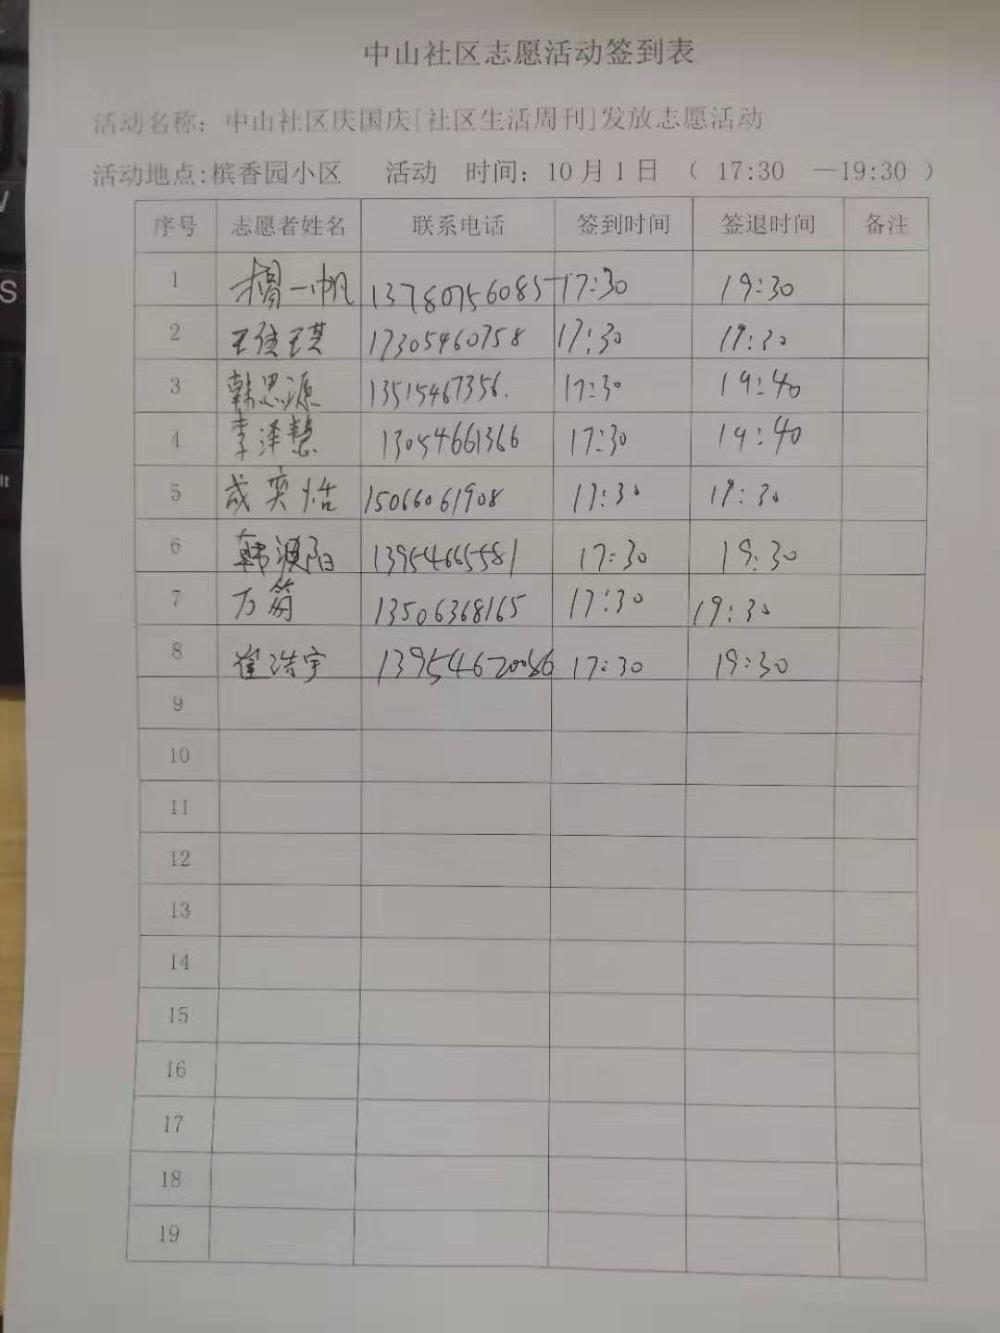 中山社区志愿活动签到表
活动名称：中山社区庆国庆[社区生活周刊]发放志愿活动
活动地点:槟香园小区 活动 时间：10月1日（17:30 —19:30）
序号 志愿者姓名 联系电话 签到时间 签退时间 备注
1 一帆 13780756085 17:30 19:30
2 王佳琪 17305460758 17:30 19:30
3 韩思源 13515467356. 17:30 19:40
4 李泽慧 13054661366 17:30 19:40
5 成奕恬 15066061908 17:30 19:30
6 韩 阳 13954665581 17:30 19:30
7 万 13506368165 17:30 19:30
8 崔浩宇 13954620086 17:30 19:30
9
10
11
12
13
14
15
16
17
18
19